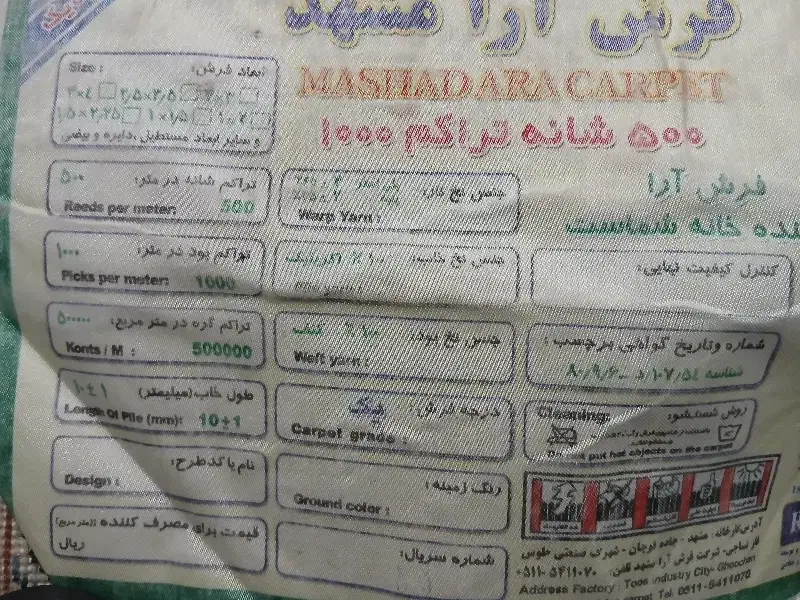 فرش آرا مشهد
MASHAD ARA CARPET
۵۰۰ شانه تراکم ۱۰۰۰
فرش آرا
خانه شماست
ابعاد فرش:
Size :
۳×۴ ۲,۵×۳,۵ ۲×۳
۱,۵×۲,۲۵ ۱×۱,۵ ۱×۲
و سایر ابعاد مستطیل ,دایره و بیضی
تراکم شانه در متر: ۵۰۰
Reeds per meter: 500
تراکم پود در متر: ۱۰۰۰
Picks per meter: 1000
تراکم گره در متر مربع: ۵۰۰۰۰۰
Konts / M : 500000
طول خاب(میلیمتر) ۱۰±۱
Lenge of Pile (mm): 10+1
نام یا کد طرح:
Design :
قیمت برای مصرف کننده (متر مربع)
ریال
جنس نخ تار:
Warp Yarn :
جنس نخ خاب: ۱۰۰٪ اکریلیک
جنس نخ پود: ۱۰۰٪ کنف
Weft yarn :
درجه فرش: یک
Carpet grade :
رنگ زمینه :
Ground color :
شماره سریال:
کنترل کیفیت نهایی:
شماره وتاریخ گواهی برچسب :
روش شستشو:
Cleaning:
Do not put hot objects on the carpet
آدرس کارخانه: مشهد - جاده قوچان - شهرک صنعتی طوس
شرکت فرش آرا مشهد تلفن: ۵۴۱۱۰۷۰-۰۵۱۱
Address Factory : Toos industry City- Ghoochan
Tel. 0511-5411070